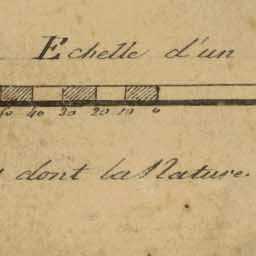 Echelle d'un
50 40 30 20 10 0
dont la Nature